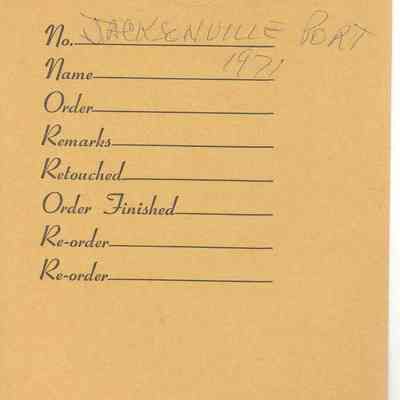 No. JACKSONVILLE PORT
Name 1971
Order
Remarks
Retouched
Order Finished
Re-order
Re-order